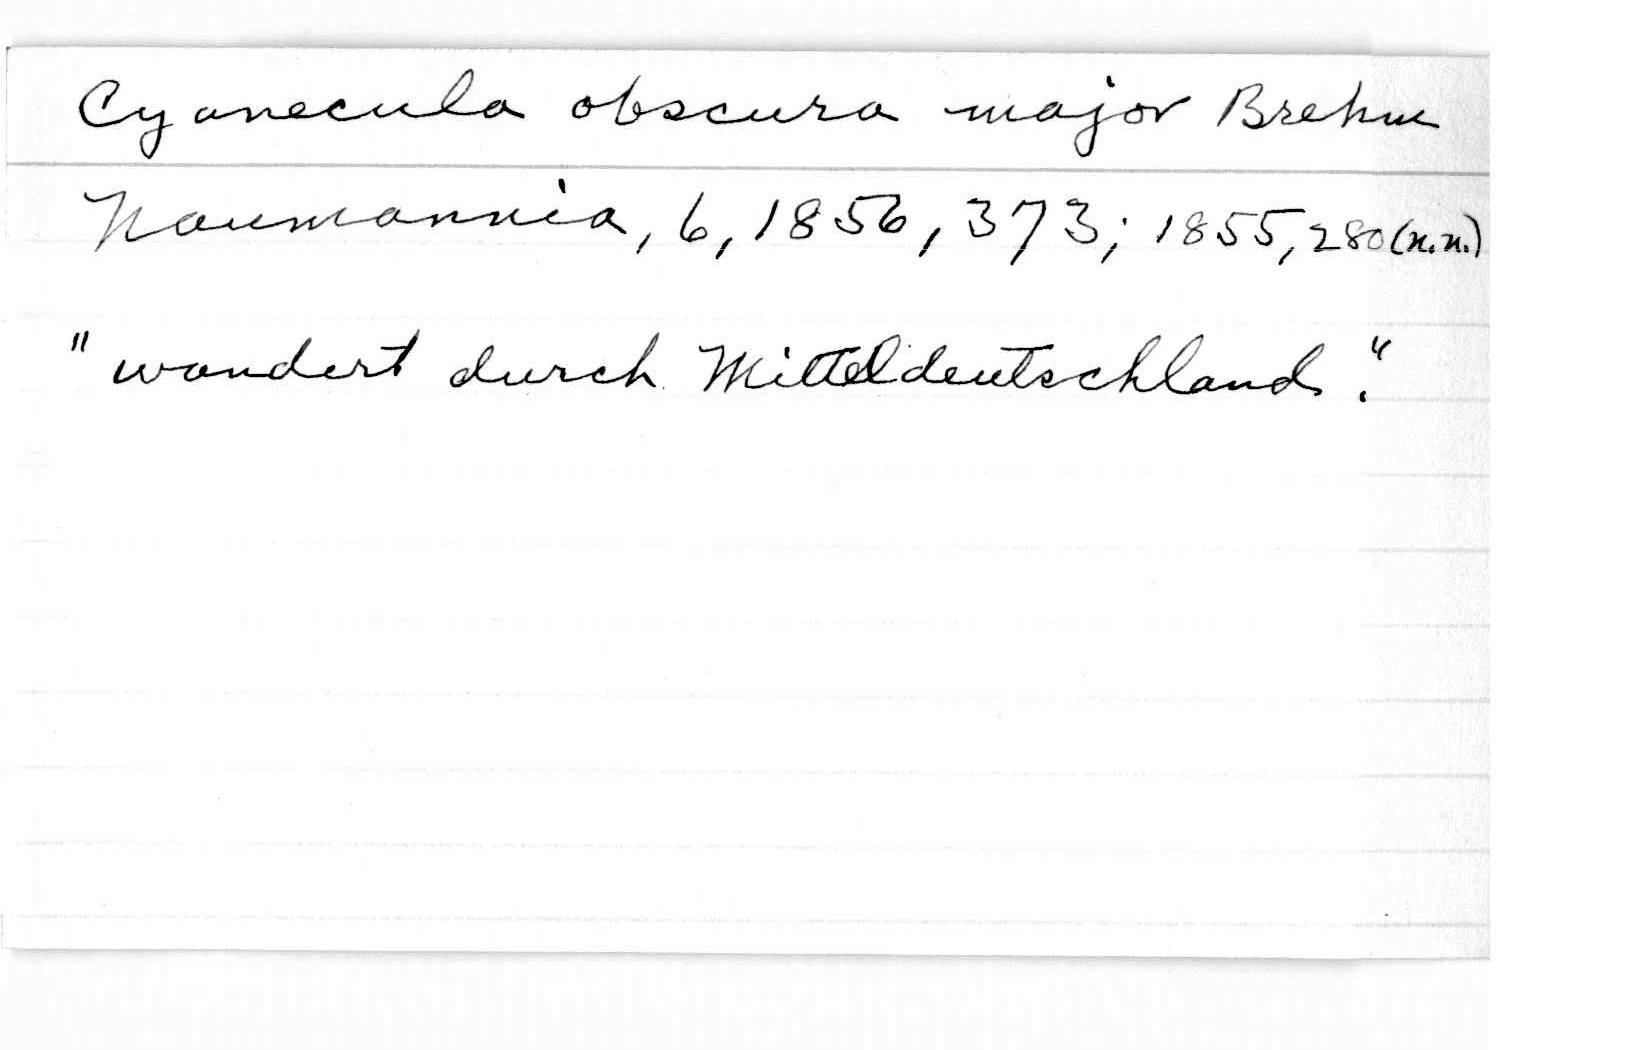 Cyanecula obscura major Brehm
Naumannia, 6, 1856, 373; 1855, 280 (n.n.)
"wandert durch Mitteldeutschland."